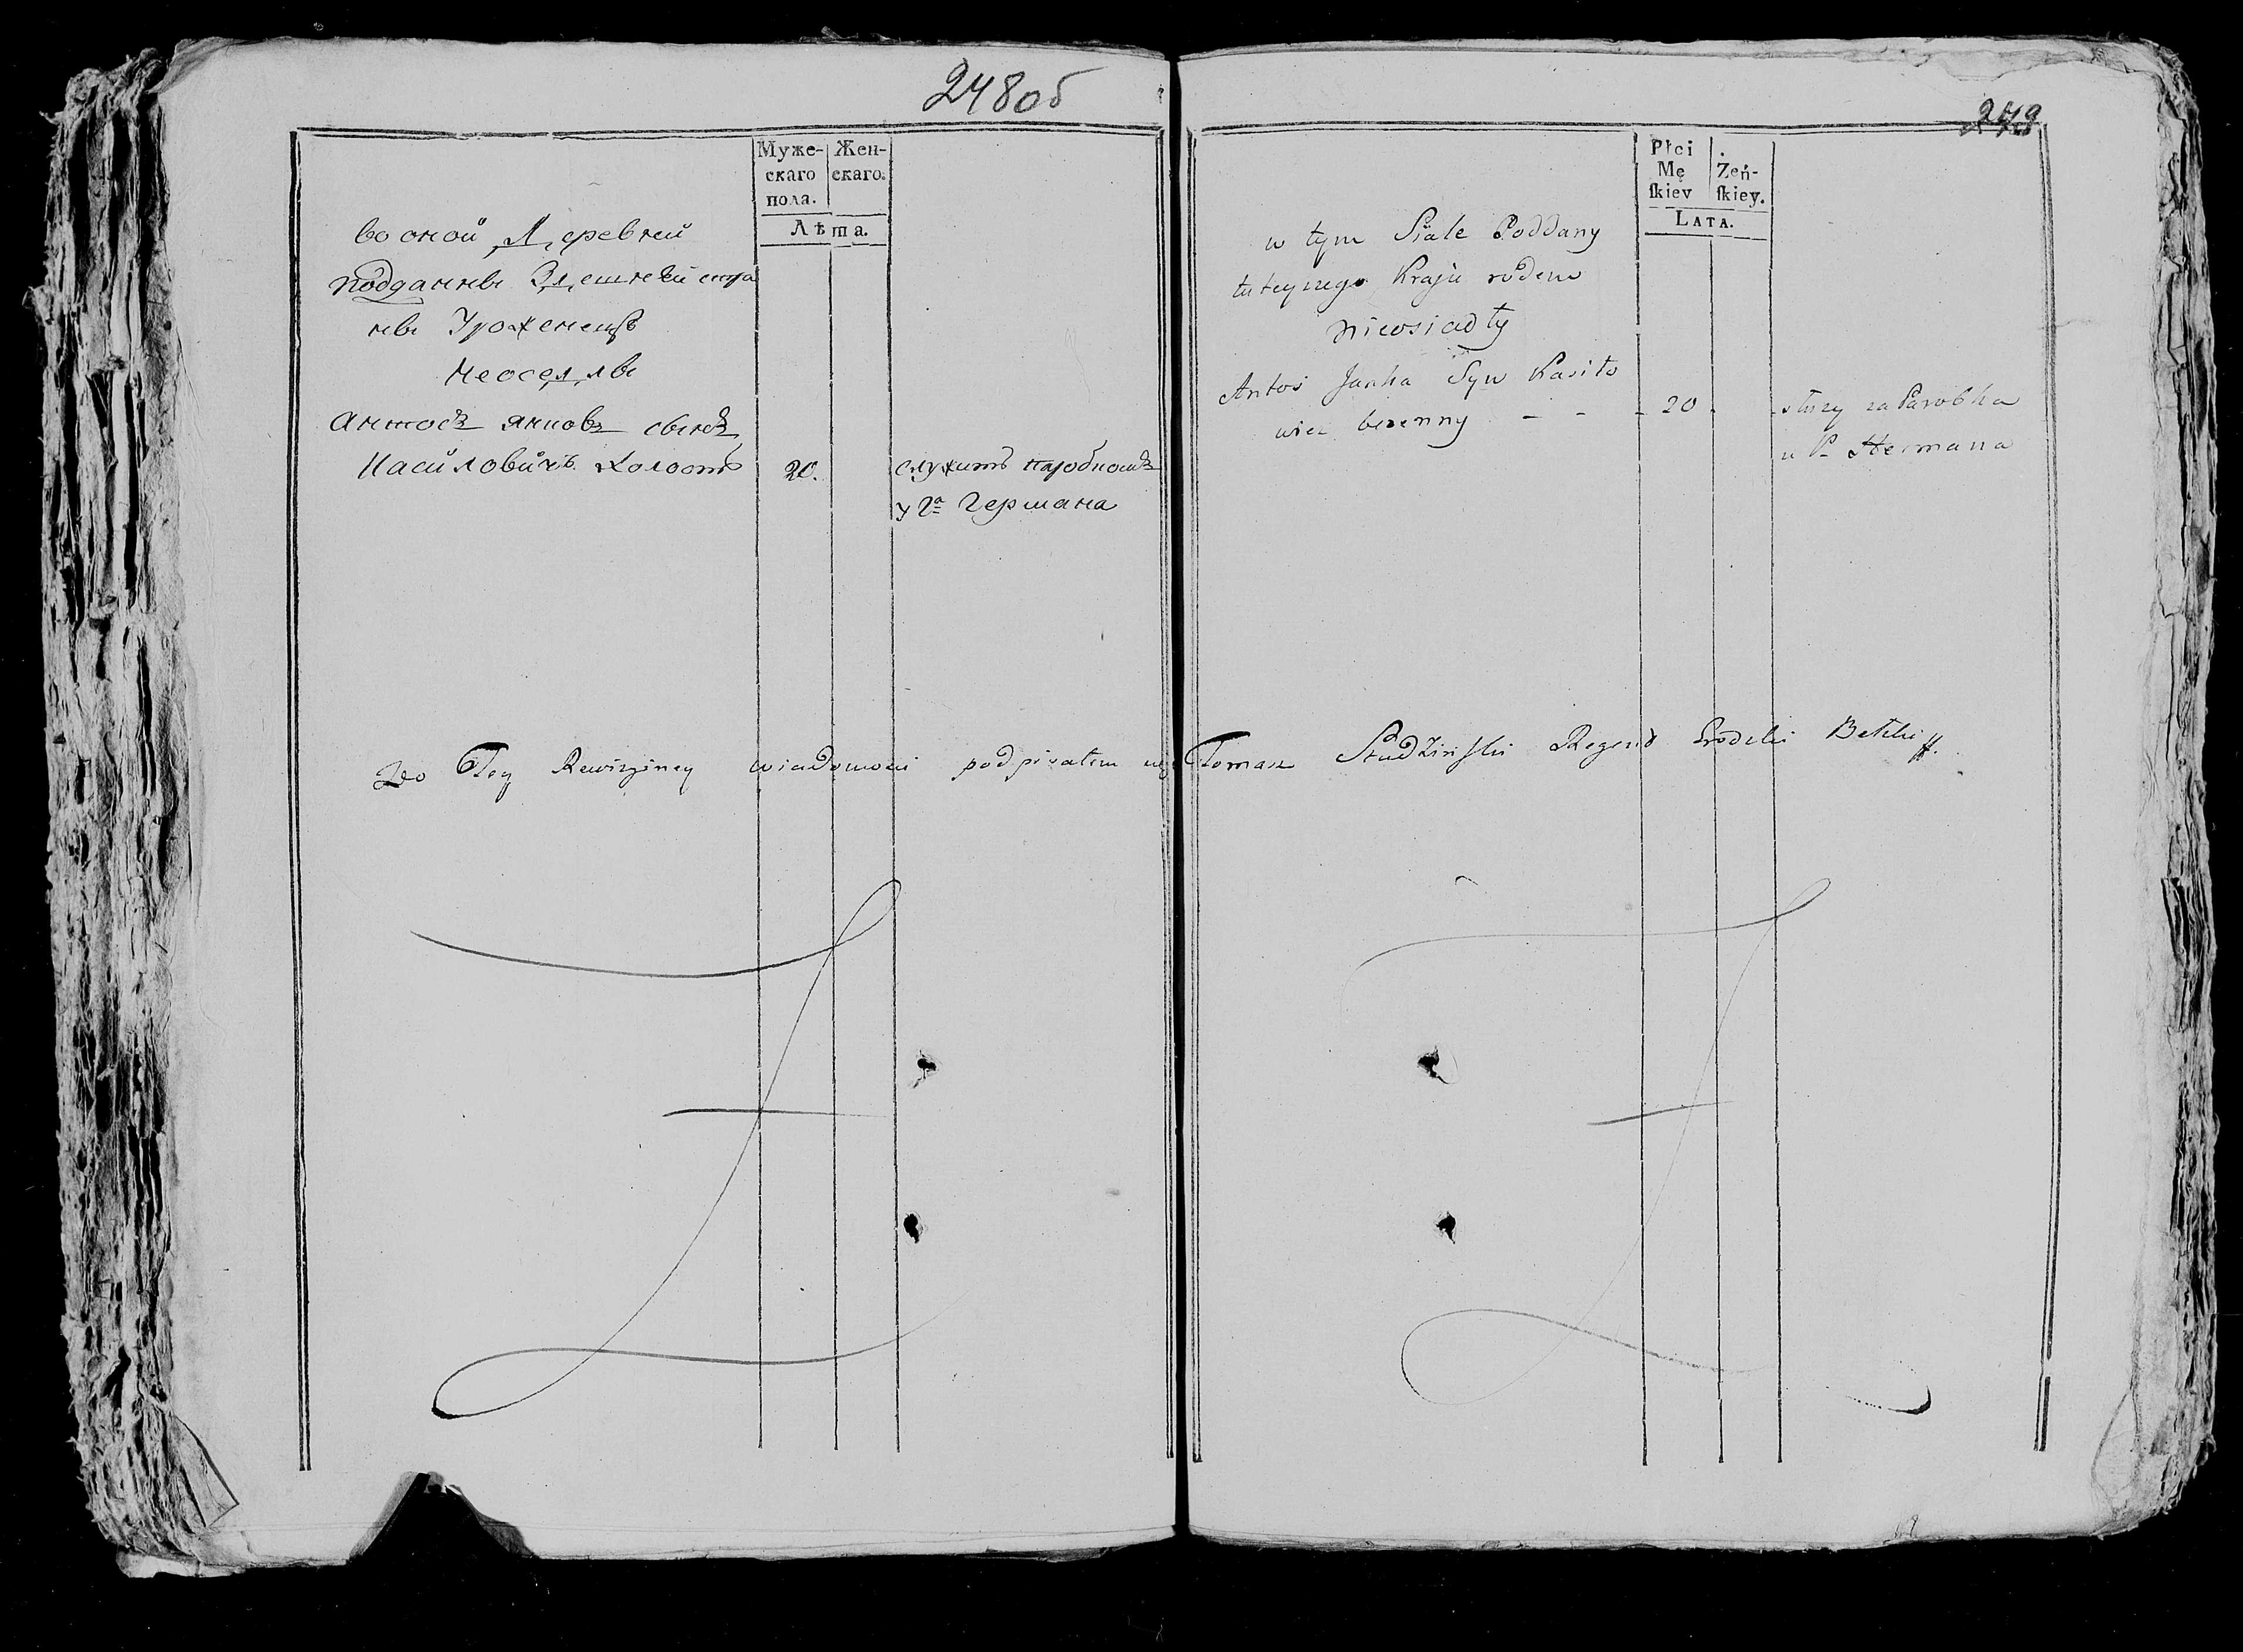 248об
Муже-
скаго
пола.
Жен-
скаго.
Лѣта.
во оной Деревни
подданны Здешней стра
ны Уроженецъ
Неоседлы
Антосъ Янковъ сынъ
Касиловичъ холостъ 20. служитъ паробкомъ
у Гª Германа
249
Płci
Mę
ſkiey
Żeń-
ſkiey.
LATA.
w tym Siale Poddany
tuteyszego Kraju rodem
Nieosiadły
Antoś Janka Syn Kasiło
wicz bezenny - - - 20 - służy za Parobka
u P. Hermana
Do Tey Rewizyiney wiadomosci podpisałem się Tomasz Studzinſki Regent Grodzki